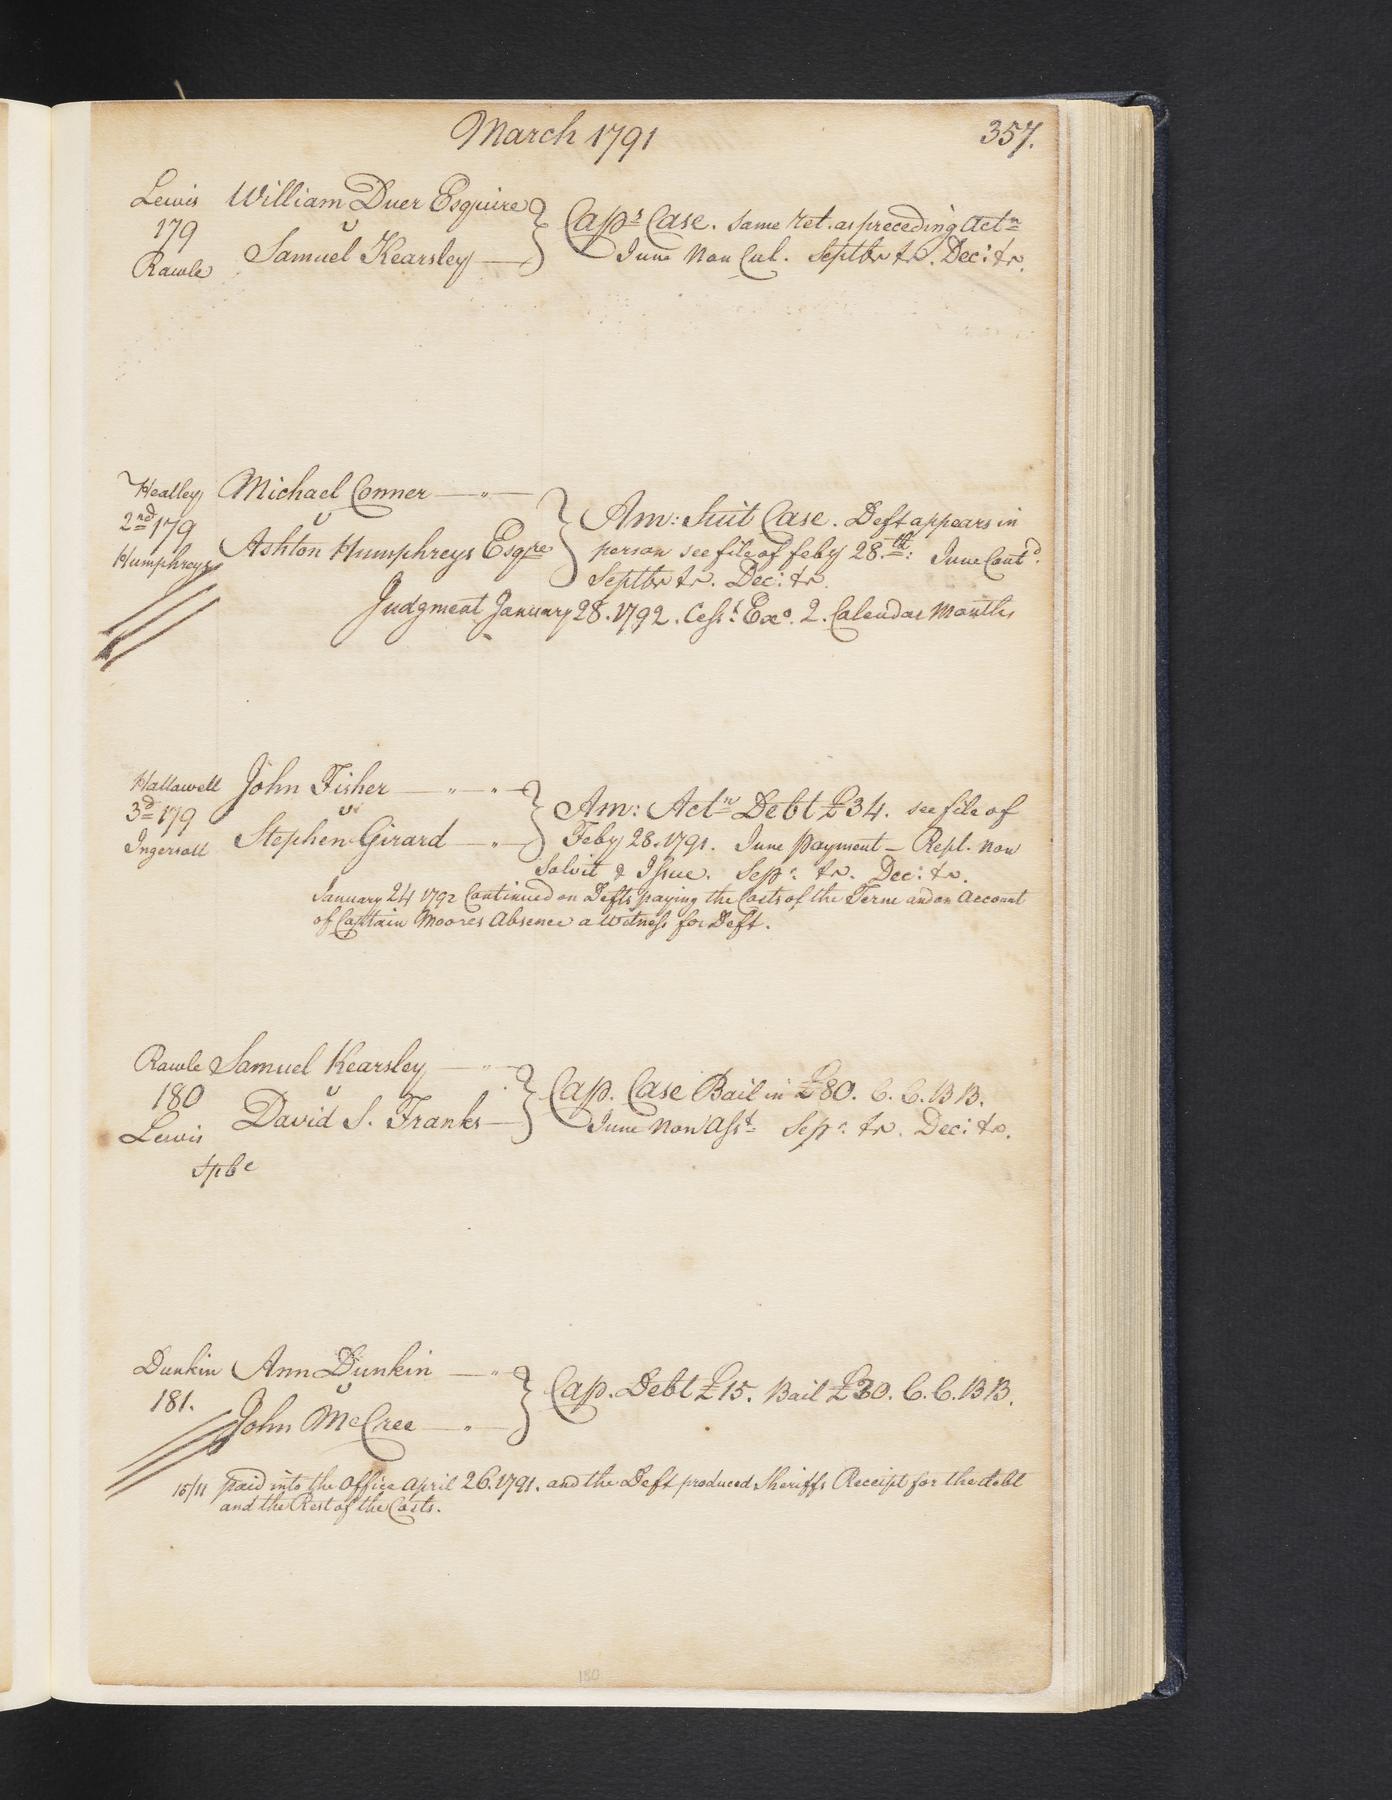 March 1791
357.
Lewis William Duer Esquire
179 v Caps Case. Same ret. as preceding Actn
Rawle Samuel Kearsley June Non Cul. Septbr tr. Dec: tr.
Healley Michael Conner
2nd 179 v Am: Suit Case. Deft appears in
Humphreys Ashton Humphreys Esqre person see file of feby 28th: June Contd.
Septbr tr. Dec: tr.
Judgment January 28. 1792. Cesst. Exo. 2. Calendar Months
Hallowell John Fisher
3d 179 v Am: Actn Debt £34. see file of
Ingersoll Stephen Girard Feby 28. 1791. June Payment - Repl. Non
Solvit & Issue. Sepr. tr. Dec: tr.
January 24 1792 Continued on Defts paying the Costs of the Term and on Account
of Captain Moores Absence a Witness for Deft.
Rawle Samuel Kearsley
180 v Cap. Case Bail in £80. C. C. BB.
Lewis David S. Franks June Non Asst Sepr. tr. Dec: tr.
Dunkin Ann Dunkin
181. v Cap. Debt £15. Bail £30. C. C. BB.
John McCree
15/11 paid into the Office April 26. 1791. and the Deft produced Sheriffs Receipt for the debt
and the Rest of the Costs.
180